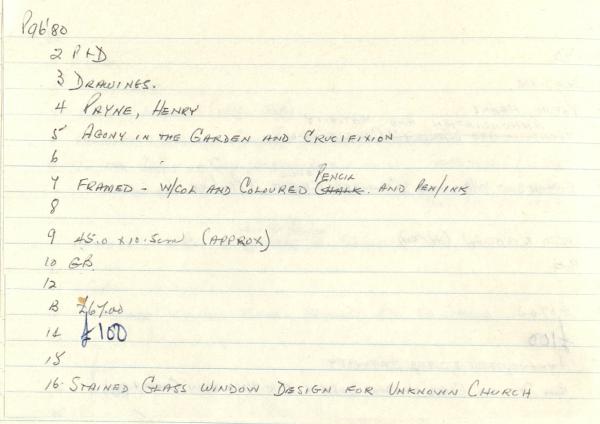 P96'80
2 P+D
3 DRAWINGS.
4 PAYNE, HENRY
5 AGONY IN THE GARDEN AND CRUCIFIXION
6
7 FRAMED - W/COL AND COLOURED PENCIL CHALK. AND PEN/INK
8
9 45.0 x 10.5cm (APPROX)
10 GB.
12
13 £67.00
14 £100
15
16. STAINED GLASS WINDOW DESIGN FOR UNKNOWN CHURCH